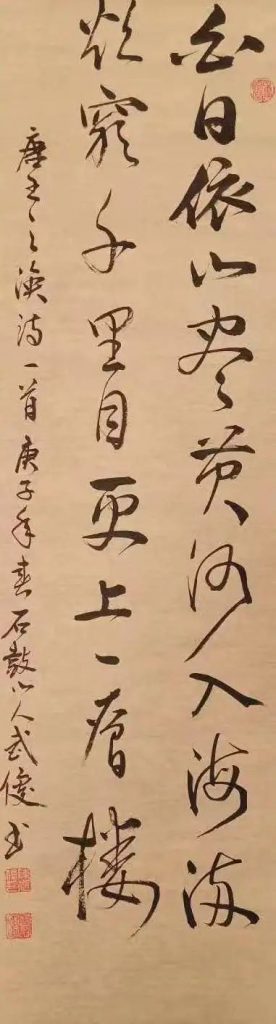 白日依山尽黄河入海流
欲穷千里目更上一层楼
唐王之涣诗一首庚子年春石鼓山人武俊书